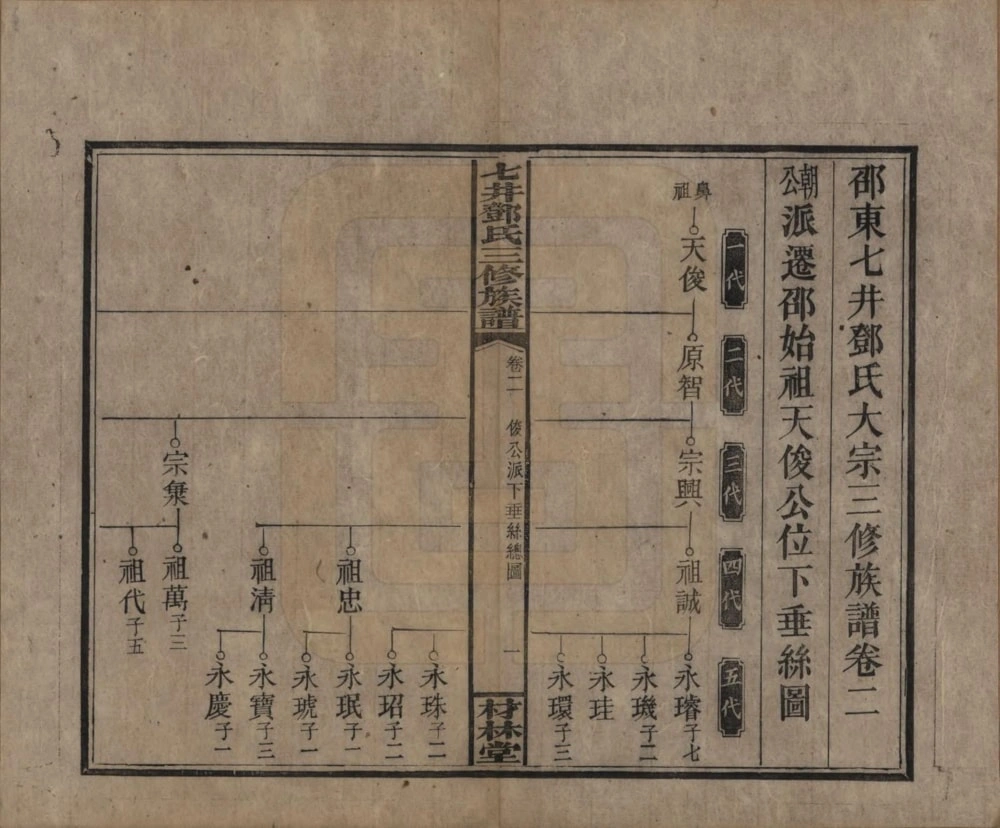 邵東七井鄧氏大宗三修族譜卷二
朝公派遷邵始祖天俊公位下垂絲圖
一代
二代
三代
四代
五代
鼻祖
天俊
原智
宗興
祖誠
永璿子七
永璣子二
永珪
永環子三
七井鄧氏三修族譜
卷二
俊公派下垂絲總圖
一
材林堂
永珠子二
永玿子二
祖忠
永珉子一
永琥子一
祖淸
永寶子三
永慶子一
宗彙
祖萬子三
祖代子五